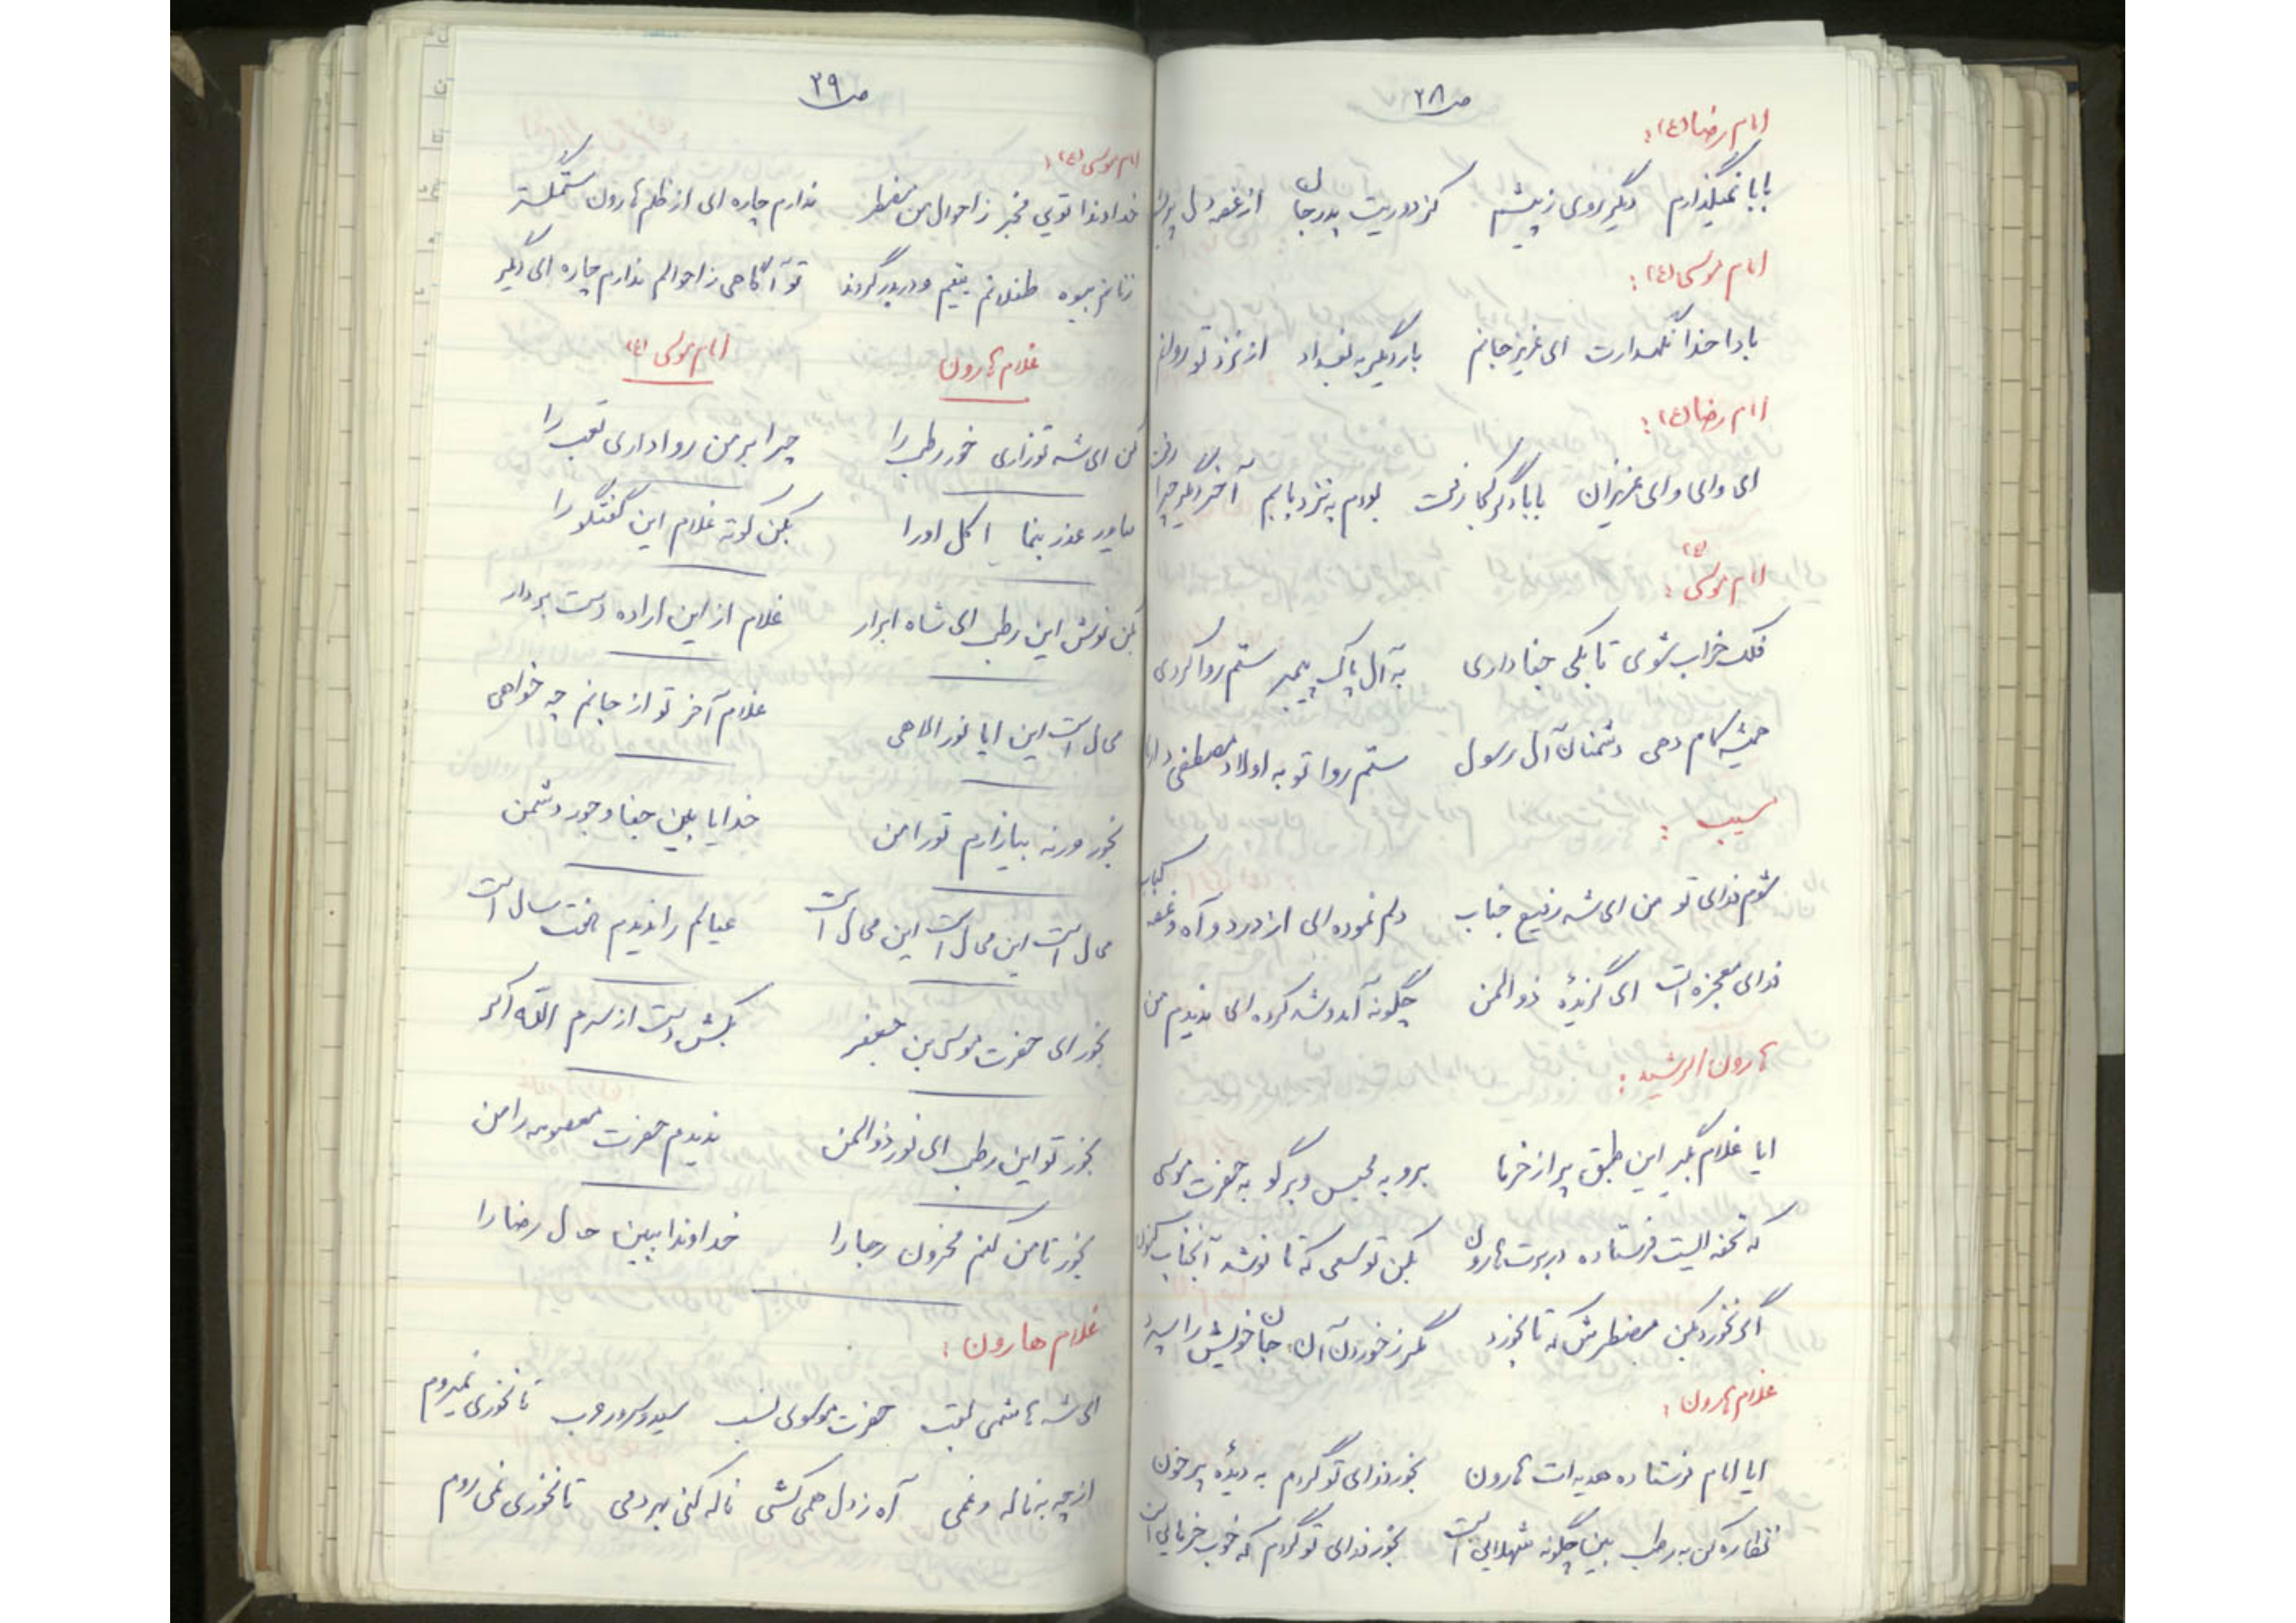 ص۲۸
امام رضا (ع) :
بابا نمیگذارم دیگر روی ز پیشم کز دوریت پدرجان از غصه دل پریش
امام موسی (ع) :
بادا خدا نگهدارت ای عزیز جانم بار دیگر به بغداد از نزد تو روانم
امام رضا (ع) :
ای وای وای عزیزان بابا دگر کجا رفت بودم به نزد بابم آخر دگر چرا رفت
امام موسی (ع) :
فلک خراب شوی تا بکی جفا داری به آل پاک پیمبر ستم روا کردی
همیشه کام دهی دشمنان آل رسول ستم روا تو به اولاد مصطفی داری
مسیب :
شوم فدای تو من ای شه رفیع جناب دلم نموده ای از درد و آه و غصه کباب
فدای معجزه ات ای گزیدهٔ ذوالمنن چگونه آمد و شد کرده ای ندیدم من
هارون الرشید :
ایا غلام بگیر این طبق پر از خرما برو به محبس و برگو به حضرت موسی
که تحفه ایست فرستاده در برت هارون بکن تو سعی که تا نوشد آنجناب کنون
اگر نخورد بکن مضطرش که تا بخورد مگر ز خوردن آن جان خویش را سپرد
غلام هارون :
ایا امام فرستاده هدیه ات هارون بخور فدای تو گردم به دیدهٔ پر خون
نظاره کن به رطب بین چگونه شهلایی است بخور فدای تو گردم که خوب خرمایی است
ص۲۹
امام موسی (ع) :
خداوندا تویی مخبر ز احوال من مضطر ندارم چاره ای از ظلم هارون ستمگستر
زنانم بیوه طفلانم یتیم و دربدر گردند تو آگاهی ز احوالم ندارم چاره ای دیگر
غلام هارون امام موسی (ع)
کن ای شه تو زاری خور رطب را چرا بر من روا داری تعب را
میاور عذر بنما اکل او را بکن کوته غلام این گفتگو را
بکن نوش این رطب ای شاه ابرار غلام از این اراده دست بردار
محال است این ایا نور الاهی غلام آخر تو از جانم چه خواهی
بخور ورنه بیازارم تو را من خدایا بین جفا و جور دشمن
محال است این محال است این محال است عیالم را ندیدم هفت سال است
بخور ای حضرت موسی بن جعفر بکش دست از سرم الله اکبر
بخور تو این رطب ای نور ذوالمنن ندیدم حضرت معصومه را من
بخور تا من کنم محزون رجا را خداوندا ببین حال رضا را
غلام هارون :
ای شه هاشمی لقب حضرت موسوی نسب سید و سرور عرب تا نخوری نمیروم
از چه به ناله و غمی آه ز دل همی کشی ناله کنی بهر دمی تا نخوری نمی روم